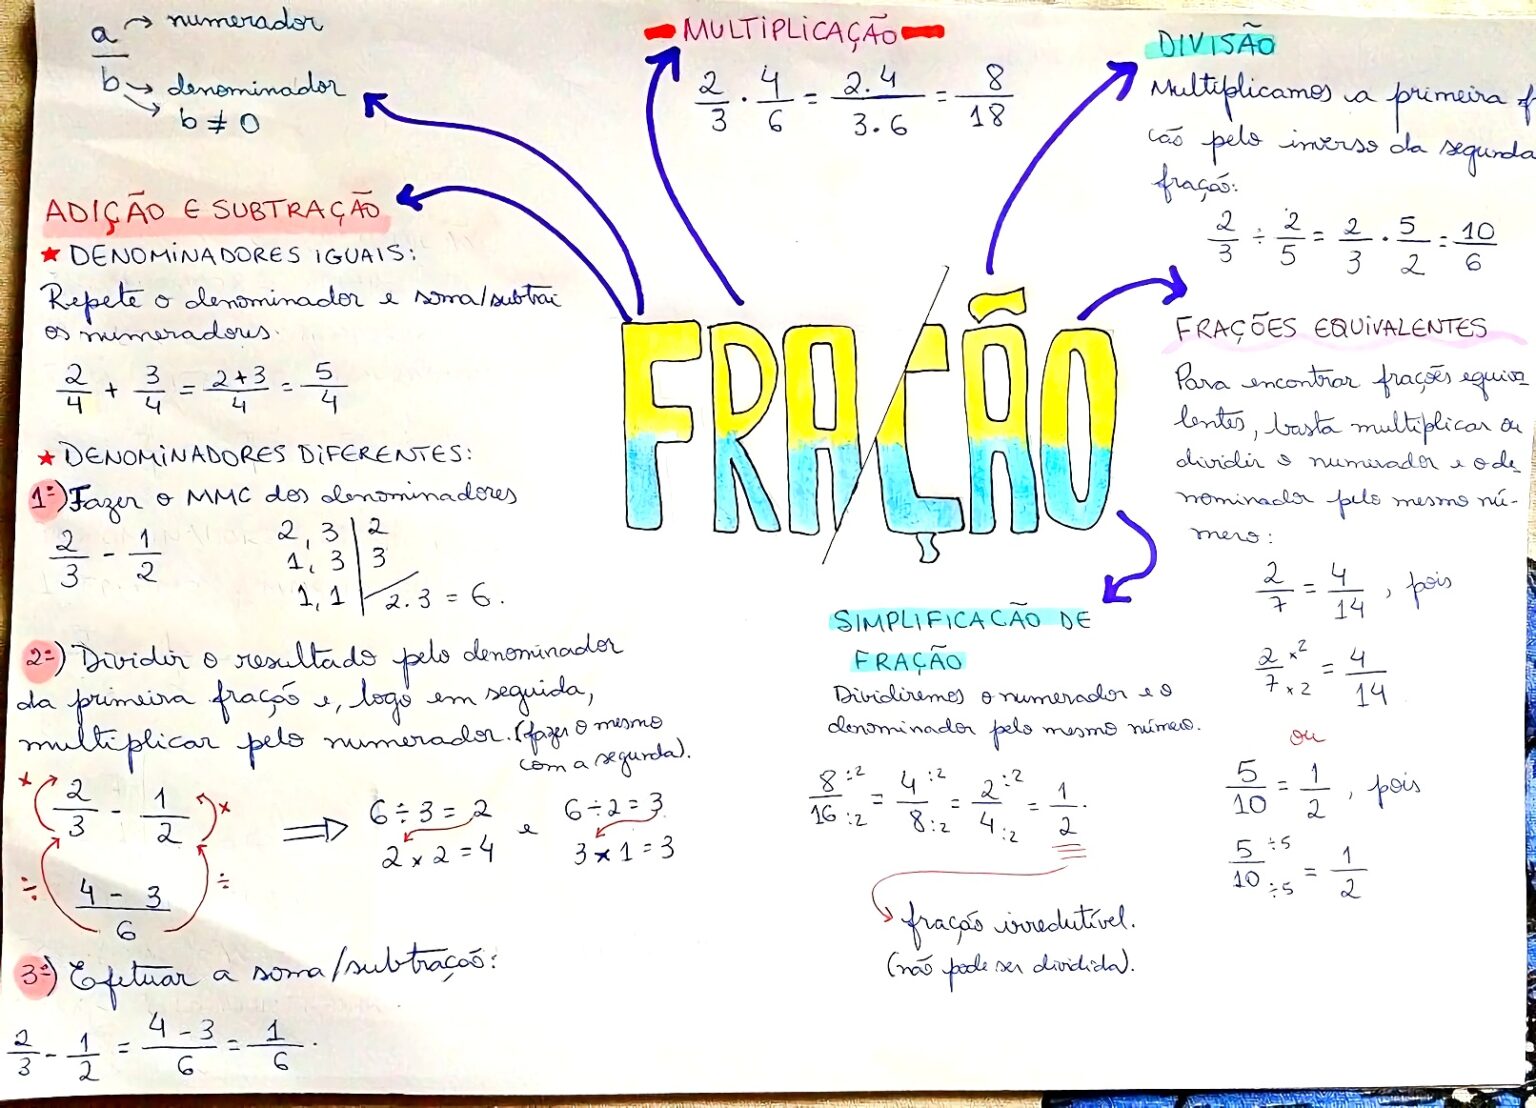 a → numerador
b → denominador
b ≠ 0
ADIÇÃO E SUBTRAÇÃO
★ DENOMINADORES IGUAIS:
Repete o denominador e soma/subtrai
os numeradores.
2/4 + 3/4 = 2+3/4 = 5/4
★ DENOMINADORES DIFERENTES:
1º) Fazer o MMC dos denominadores
2/3 - 1/2
2, 3 | 2
1, 3 | 3
1, 1 | 2.3 = 6.
2º) Dividir o resultado pelo denominador
da primeira fração e, logo em seguida,
multiplicar pelo numerador. (fazer o mesmo
com a segunda).
× 2/3 - 1/2 ×
÷ 4 - 3/6 ÷
⇒ 6 ÷ 3 = 2 e 6 ÷ 2 = 3
2 × 2 = 4 3 × 1 = 3
3º) Efetuar a soma/subtração:
2/3 - 1/2 = 4 - 3/6 = 1/6.
MULTIPLICAÇÃO
2/3 . 4/6 = 2.4/3.6 = 8/18
FRAÇÃO
DIVISÃO
Multiplicamos a primeira f
ção pelo inverso da segunda
fração:
2/3 ÷ 2/5 = 2/3 . 5/2 = 10/6
FRAÇÕES EQUIVALENTES
Para encontrar frações equiva
lentes, basta multiplicar ou
dividir o numerador e o de
nominador pelo mesmo nú-
mero:
2/7 = 4/14, pois
2 ×2/7 ×2 = 4/14
ou
5/10 = 1/2, pois
5 ÷5/10 ÷5 = 1/2
SIMPLIFICACÃO DE
FRAÇÃO
Dividiremos o numerador e o
denominador pelo mesmo número.
8 :2/16 :2 = 4 :2/8 :2 = 2 :2/4 :2 = 1/2.
fração irredutível.
(não pode ser dividida).